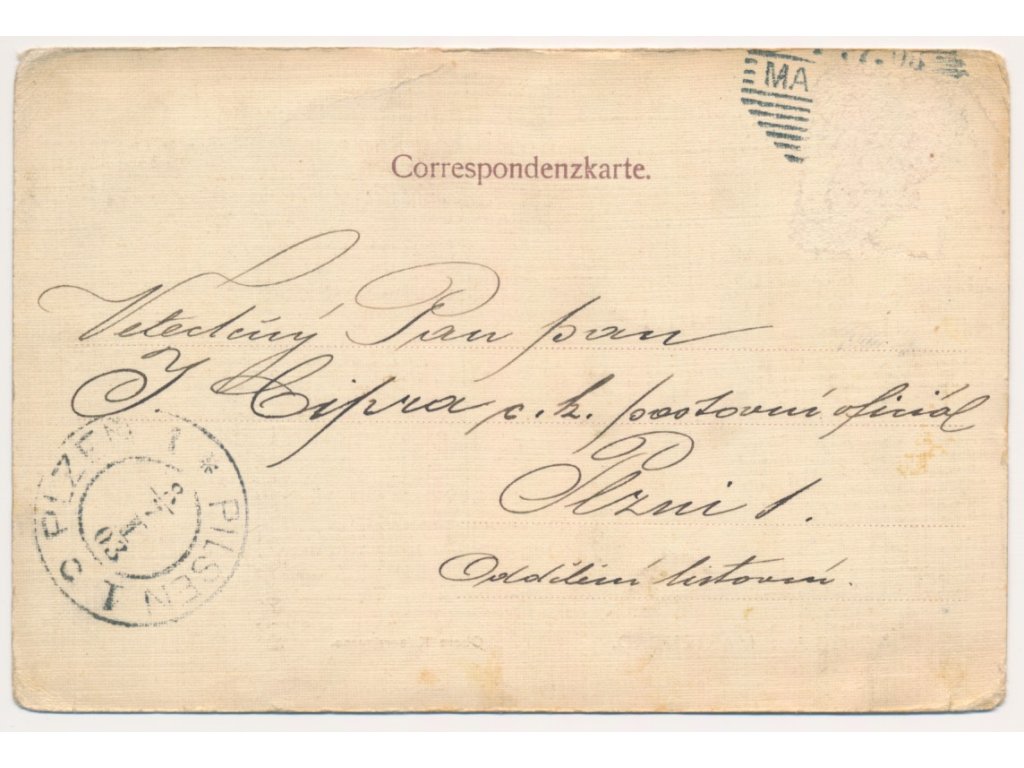 MA
7.03
Correspondenzkarte.
Velectěný Pan pan
J Cipra c. k. poštovní oficiál
Plzni 1.
Oddělení listovní.
PLZEŇ 1 * PILSEN 1 c
03